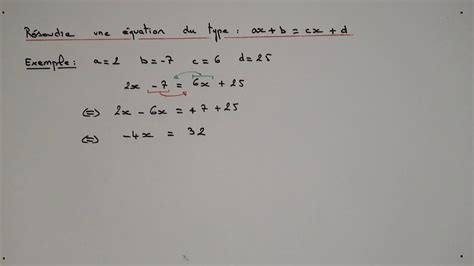 Résoudre une équation du type : ax + b = cx + d
Exemple : a = 2 b = -7 c = 6 d = 25
2x - 7 = 6x + 25
(=) 2x - 6x = +7 + 25
(=) -4x = 32